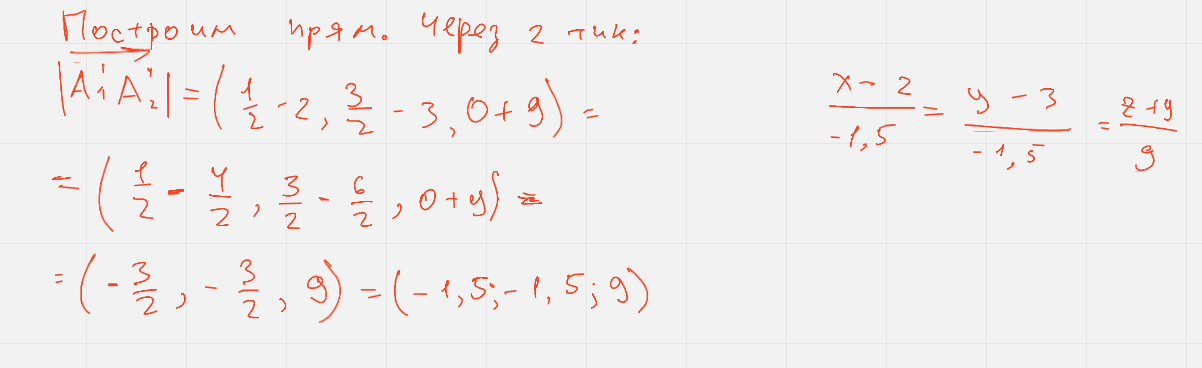 Построим прям. через 2 тчк:
|A₁'A₂'| = (1/2 - 2, 3/2 - 3, 0+9) =
= (1/2 - 4/2, 3/2 - 6/2, 0+9) =
= (-3/2, -3/2, 9) = (-1,5; -1,5; 9)
(x-2)/(-1,5) = (y-3)/(-1,5) = (z+9)/9